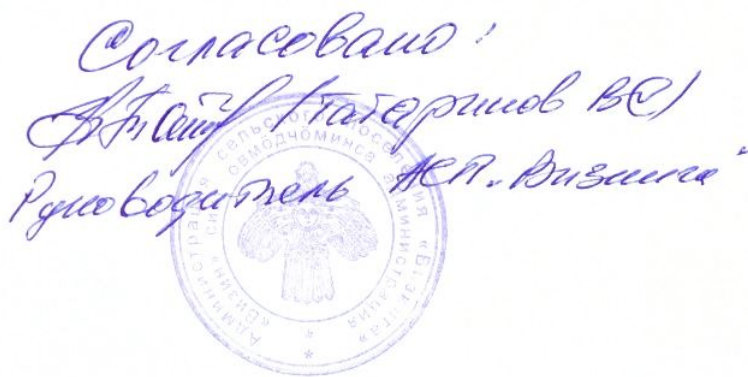 Согласовано:
(Татаринов ВС)
Руководитель АСП „Визинга"
Администрация сельского поселения «Визинга»
«Визин» сикт овмӧдчӧминса администрация